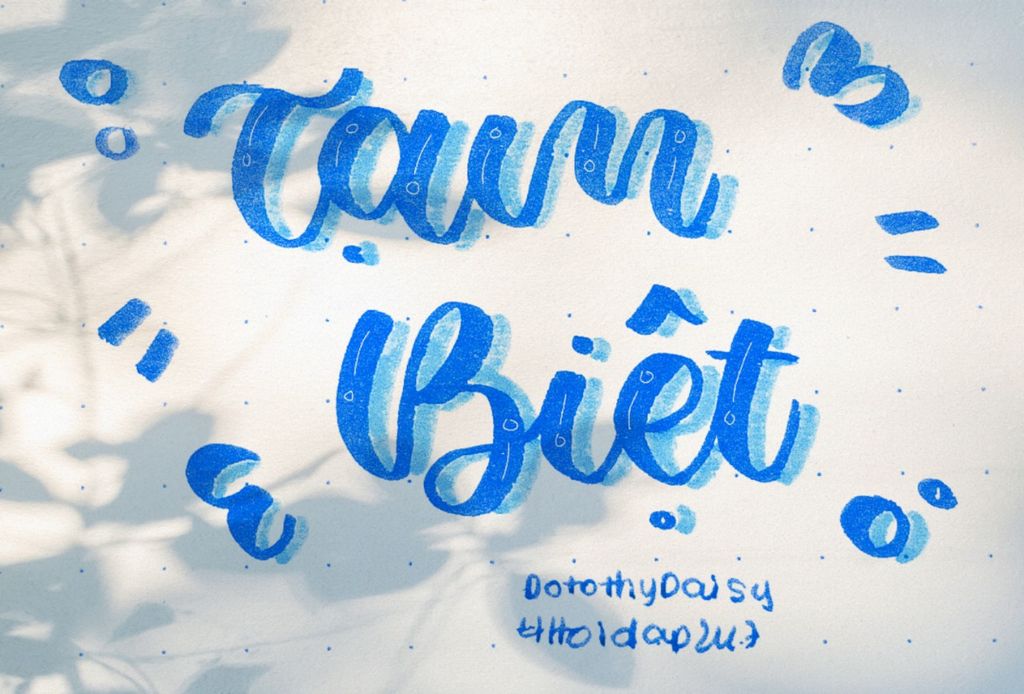 Tạm
Biệt
DorothyDaisy
#Hoidap247